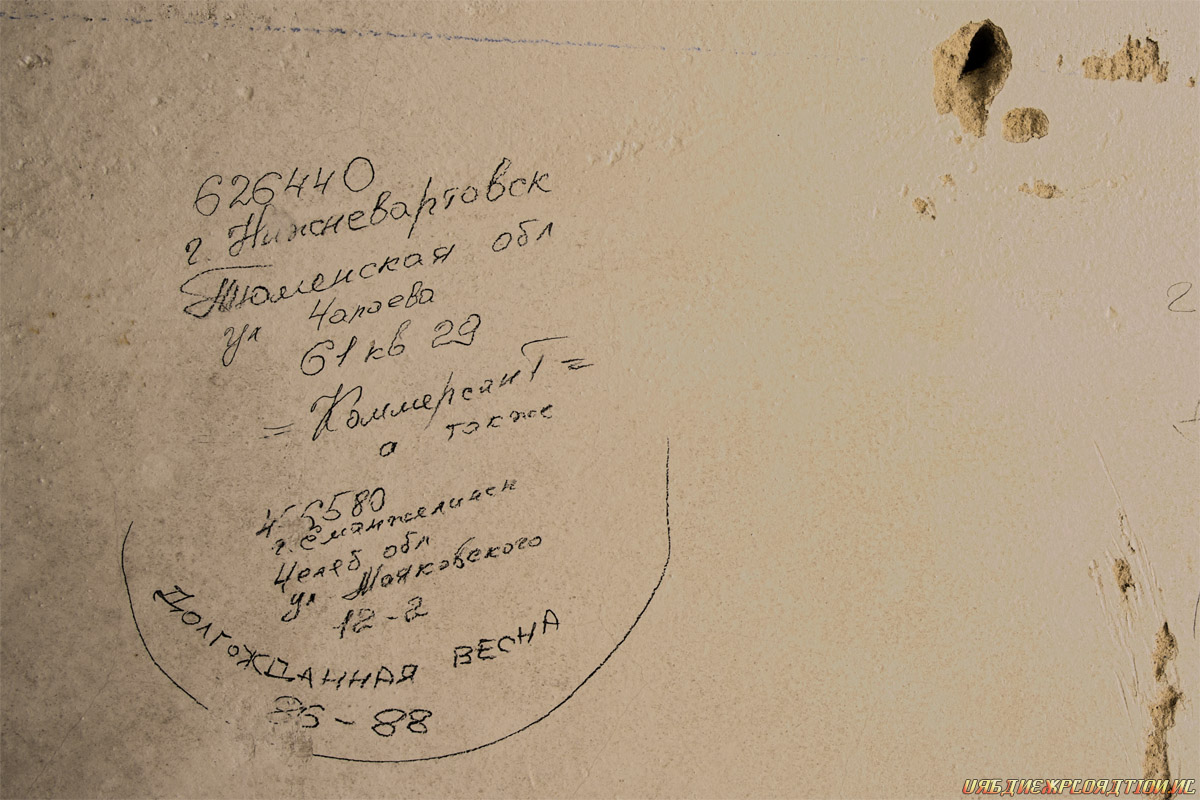 626440
г. Нижневартовск
Тюменская обл
ул Чапаева
61 кв 29
= КоммерсанТ =
а также
456580
г. Еманжелинск
Челяб обл
ул Маяковского
12-2
ДОЛГОЖДАННАЯ ВЕСНА
86-88
2
URBANEXPLORATION.NL